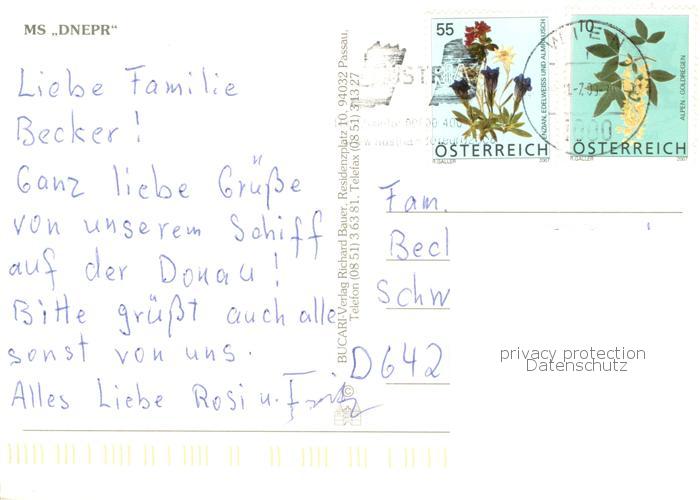 MS „DNEPR“
Liebe Familie
Becker!
Ganz liebe Grüße
von unserem Schiff
auf der Donau!
Bitte grüßt auch alle
sonst von uns.
Alles Liebe Rosi u. Fritz
BUCARI-Verlag Richard Bauer, Residenzplatz 10, 94032 Passau,
Telefon (08 51) 3 63 81, Telefax (08 51) 3 13 27
55
ENZIAN, EDELWEISS UND ALMRAUSCH
ÖSTERREICH
R.GALLER 2007
10
ALPEN - GOLDREGEN
ÖSTERREICH
R.GALLER 2007
WIEN
Fam.
Becl
Schw
D 642
privacy protection
Datenschutz